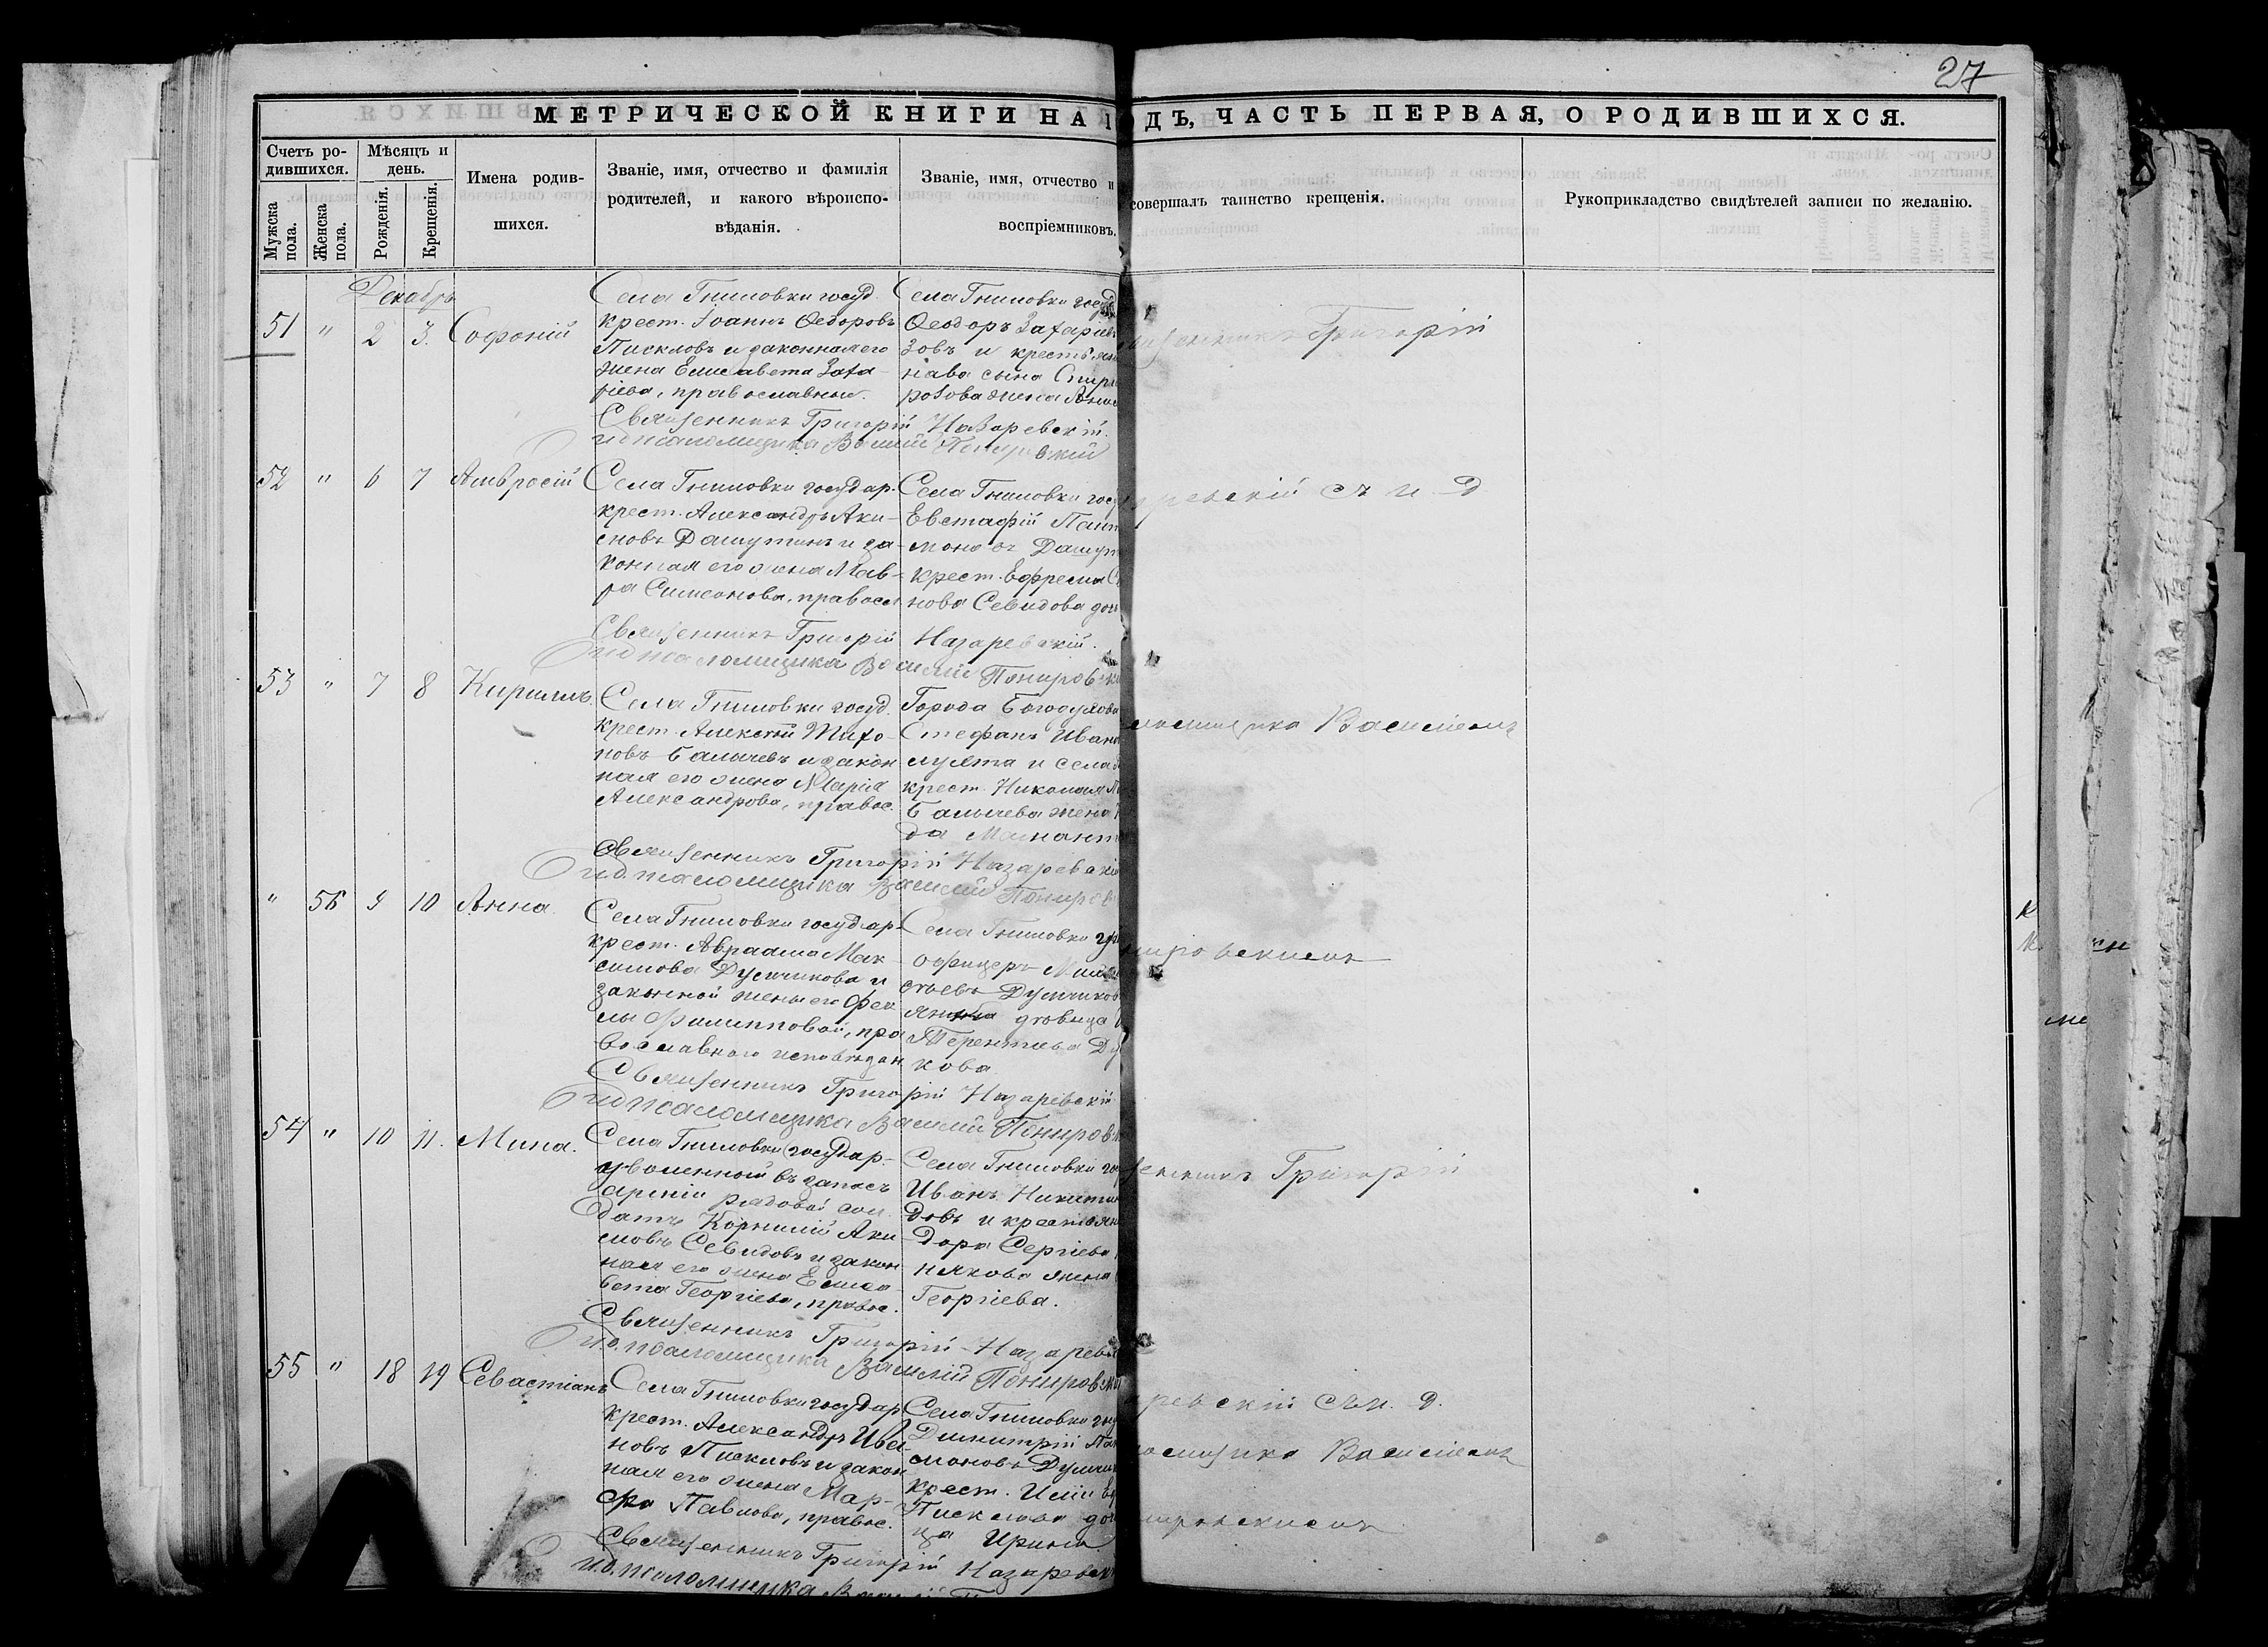 27
МЕТРИЧЕСКОЙ КНИГИ НА 1
ДЪ, ЧАСТЬ ПЕРВАЯ, О РОДИВШИХСЯ.
Счетъ ро-
дившихся.
Мужска пола.
Женска пола.
Мѣсяцъ и
день.
Рожденія.
Крещенія.
Имена родив-
шихся.
Званіе, имя, отчество и фамилія
родителей, и какого вѣроиспо-
вѣданія.
Званіе, имя, отчество и
воспріемниковъ.
совершалъ таинство крещенія.
Рукоприкладство свидѣтелей записи по желанію.
Декабрь
51 " 2 3. Софоній
Села Гниловки госуд.
крест. Іоаннъ Ѳедоровъ
Пискловъ и законная его
жена Елисавета Заха-
ріева, православные.
Села Гниловки госуд
Ѳеодоръ Захаріев
зовъ и крестьян
нава сына Спири
жена
Священникъ Григорій Назаревскій.
И д псаломщика Василій Понировскій
Священникъ Григорій
52 " 6 7 Амвросій
Села Гниловки государ.
крест. Александръ Аки-
мовъ Дашутинъ и за-
конная его жена Мав-
ра Симеонова, правосл
Села Гниловки госу
Евстафій
моновъ Дашут
крест. Ефрема
нова Севидова доч
Священникъ Григорій Назаревскій.
И д псаломщика Василій Понировск
ревскій съ и. д
53 " 7 8 Кириллъ.
Села Гниловки госуд.
крест. Алексѣй Тихо-
новъ Балычевъ и закон
ная его жена Марія
Александрова, правос.
Города Богодухова
Стефанъ Ивано
и села
крест. Николая
Балычева жена
да
Священникъ Григорій Назаревскі
И д. псаломщика Василій Пониров
ломщика Василіемъ
" 56 9 10 Анна.
Села Гниловки государ-
крест. Авраама Мак-
симова Думчикова и
законной жены его Фек
лы Филипповой, пра
вославного исповѣдан
Села Гниловки
офицеръ
Думчиков
дѣвица
Терентіева Ду
кова
Священникъ Григорій Назаревскій
И д псаломщика Василій Пониров
нировскимъ
54 " 10 11. Мина.
Села Гниловки государ.
уволенной въ запасъ
арміи рядовой сол
датъ Корнилій Аки
мовъ Севидовъ и закон
ная его жена Елиса
вета Георгіева, правос.
Села Гниловки го
Иванъ Никити
довъ и крестьян
дора Сергіева
някова жена
Георгіева.
Священникъ Григорій Назаревск
И. д. псаломщика Василій Понировск
щенникъ Григорій
55 " 18 19 Севастіанъ
Села Гниловки государ
крест. Александръ Ива-
новъ Пискловъ и закон
ная его жена Мар-
фа Павлова, правос.
Села Гниловки госу
Димитрій Па
моновъ Думчи
крест. Иліи
Писклова доч
ца Ирина
Священникъ Григорій Назаревск
И. д. псаломщика
ревскій съ и. д.
ломщика Василіемъ
нировскимъ